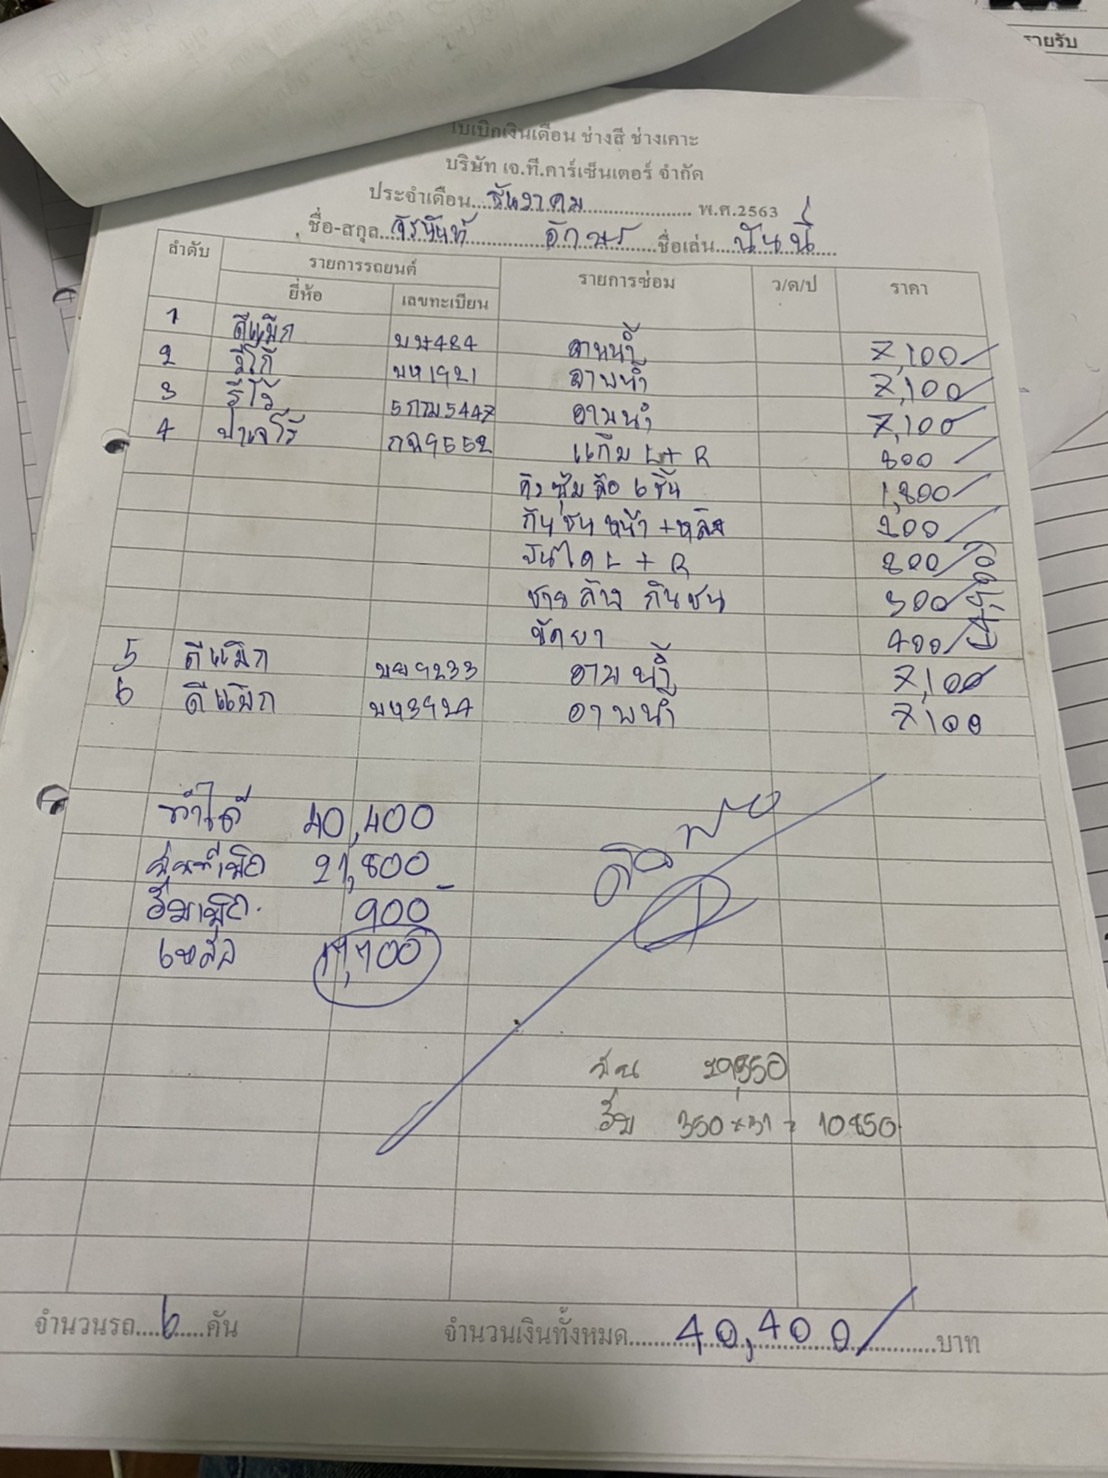 รายรับ
ใบเบิกเงินเดือน ช่างสี ช่างเคาะ
บริษัท เจ.ที.คาร์เซ็นเตอร์ จำกัด
ประจำเดือน ธันวาคม พ.ศ.2563
ชื่อ-สกุล จิรนันท์ อักษร ชื่อเล่น นันนี่
ลำดับ รายการรถยนต์ รายการซ่อม ว/ด/ป ราคา
ยี่ห้อ เลขทะเบียน
1 ดีแม็ก 484 อาบน้ำ 7,100
2 วีโก้ บห1921 อาบน้ำ 7,100
3 รีโว้ 5กฌ5447 อาบน้ำ 7,100
4 ปาเจโร่ กฉ9552 แก้ม L+R 800
คิ้วซุ้มล้อ 6 ชิ้น 1,800
กันชนหน้า+หลัง 800
บันได L + R 800
ชายล่าง กันชน 300
ขัดยา 400
5 ดีแม็ก 9233 อาบน้ำ 7,100
6 ดีแม็ก บห3927 อาบน้ำ 7,100
ทำได้ 40,400
21,800
900
เหลือ 17,700
29,350
350 x 31 = 10850
จำนวนรถ 6 คัน จำนวนเงินทั้งหมด 40,400 บาท